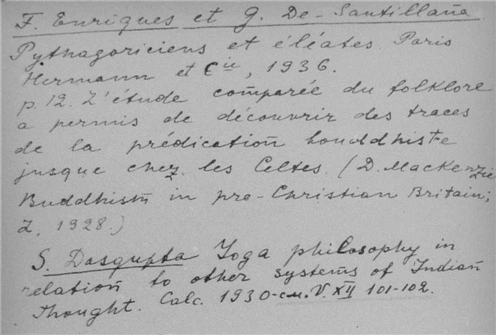 F. Enriques et G. De-Santillana
Pythagoriciens et éléates. Paris
Hermann et Cie, 1936.
p. 12. L'étude comparée du folklore
a permis de découvrir des traces
de la prédication bouddhiste
jusque chez les Celtes. (D. Mackenzie
Buddhism in pre-Christian Britain;
L, 1928.)
S. Dasgupta Yoga philosophy in
relation to other systems of Indian
Thought. Calc. 1930 - см. V. XII 101-102.